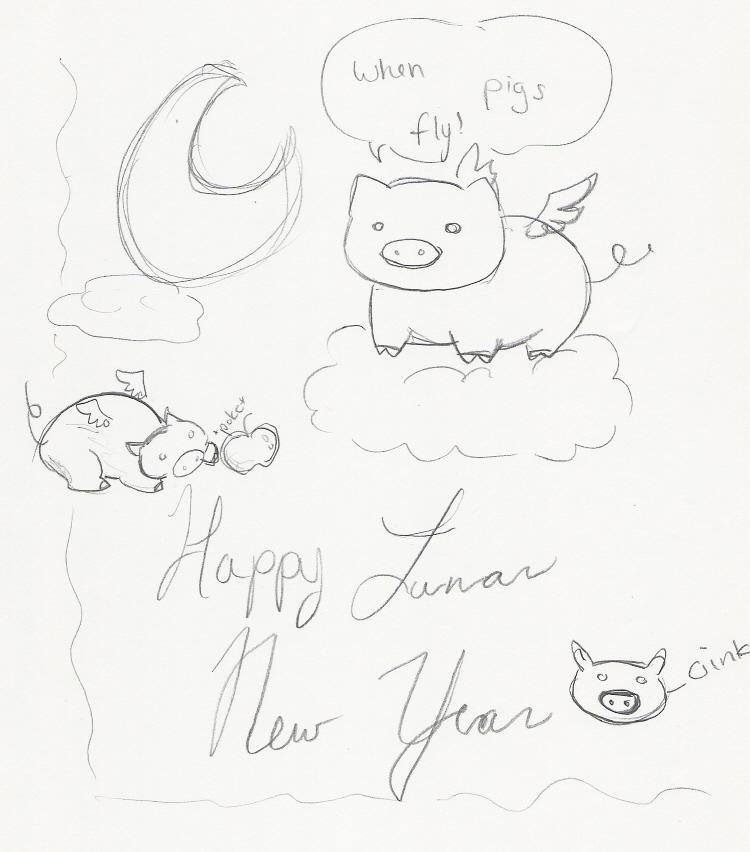 When pigs
fly!
*poke*
Happy Lunar
New Year
oink